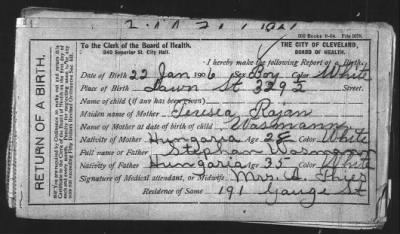 500 Books
To the Clerk of the Board of Health.
THE CITY OF CLEVELAND,
BOARD OF HEALTH.
I hereby make the following Report of a Birth.
RETURN OF A BIRTH.
Date of Birth 22 Jan 1906 Sex Boy Color White
Place of Birth Lawn St 3292 Street.
Name of child (if any has been given)
Maiden name of Mother Teresia Rajan
Name of Mother at date of birth of child Wasmann
Nativity of Mother Hungaria Age 28 Color White
Full name of Father Stephan Wasmann
Nativity of Father Hungaria Age 35 Color White
Signature of Medical attendant, or Midwife Mrs.
Residence of Same 191 Gauge St